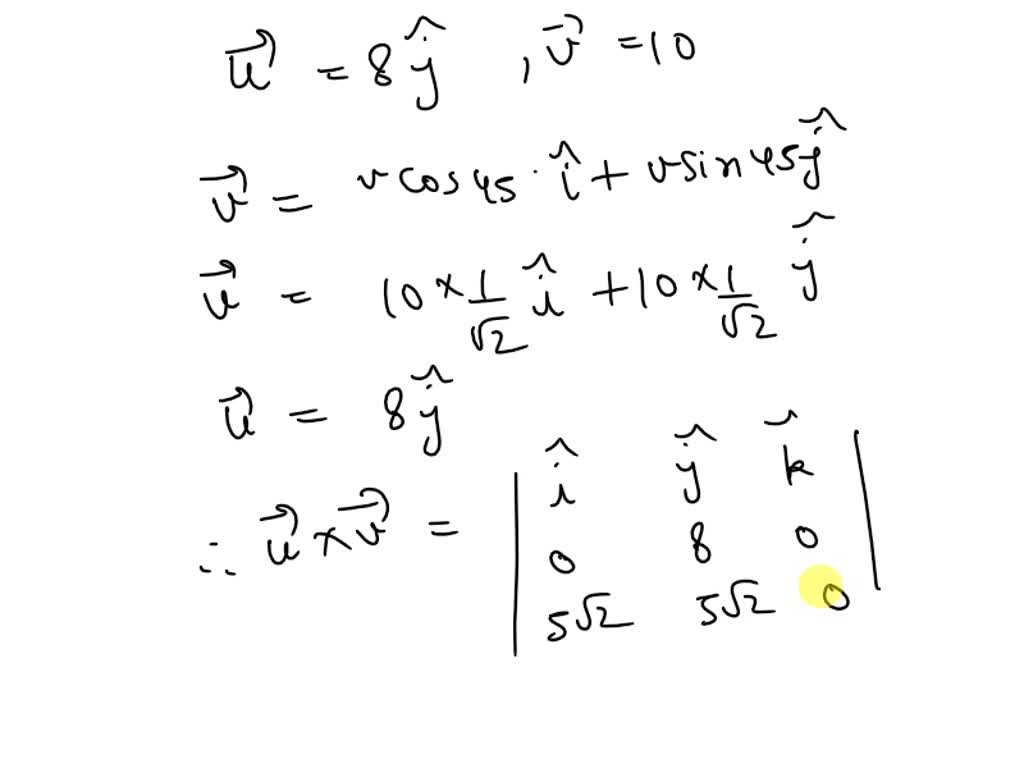 u⃗ = 8ĵ , v⃗ = 10
v⃗ = v cos 45 · î + v sin 45 ĵ
v⃗ = 10 × 1/√2 î + 10 × 1/√2 ĵ
u⃗ = 8ĵ
∴ u⃗ × v⃗ = | î ĵ k̂ |
| 0 8 0 |
| 5√2 5√2 0 |